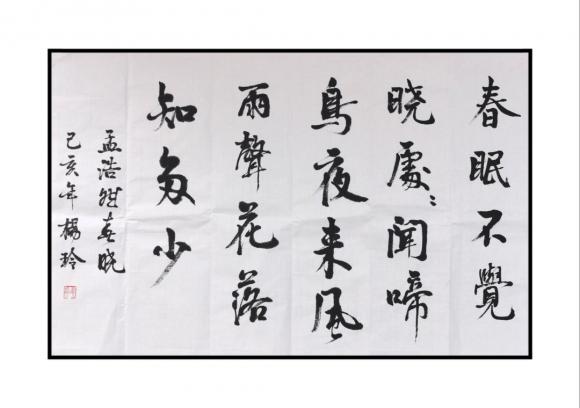 春眠不覺
曉處〻聞啼
鳥夜来風
雨聲花落
知多少
孟浩然春晓
己亥年楊玲